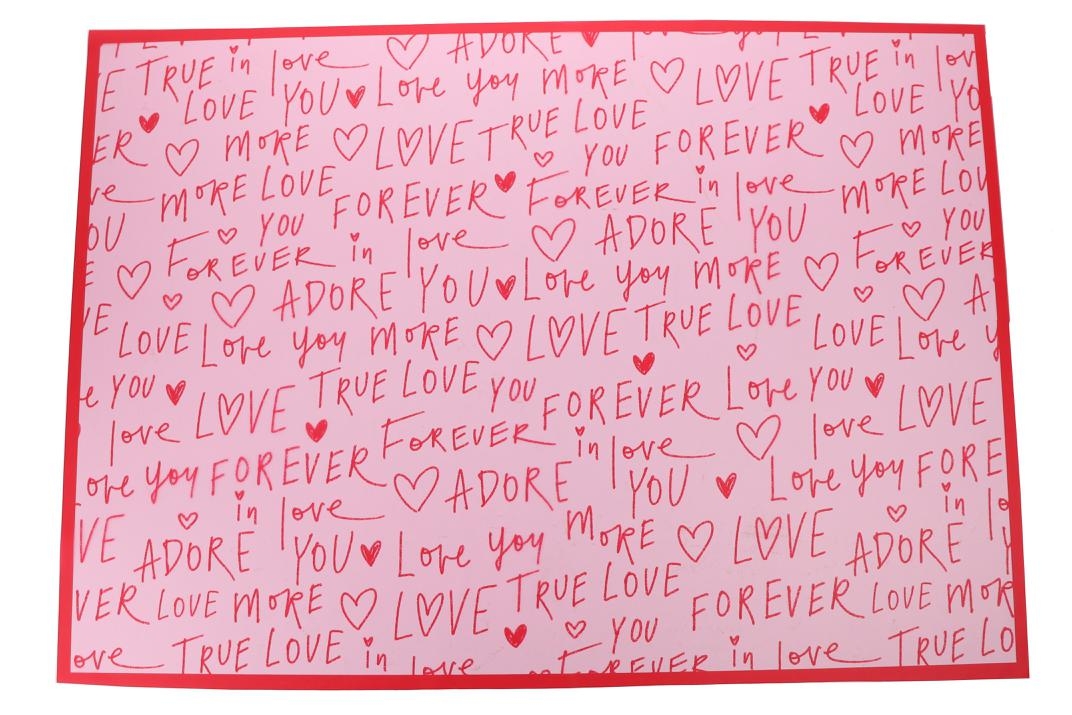 ADORE
TRUE in love Love you MORE LOVE TRUE in
LOVE YOU LOVE
MORE LOVE TRUE LOVE YOU FOREVER MORE
MORE LOVE FOREVER FOREVER in love MORE
YOU ADORE YOU YOU
FOREVER in love FOREVER
ADORE YOU Love you MORE
LOVE Love you MORE LOVE TRUE LOVE LOVE Love
YOU TRUE LOVE YOU FOREVER Love YOU LOVE
love LOVE FOREVER in love love
Love you FOREVER ADORE YOU Love you
in love in
ADORE YOU Love you MORE LOVE ADORE
LOVE MORE LOVE TRUE LOVE FOREVER LOVE
TRUE LOVE in love YOU FOREVER in love TRUE